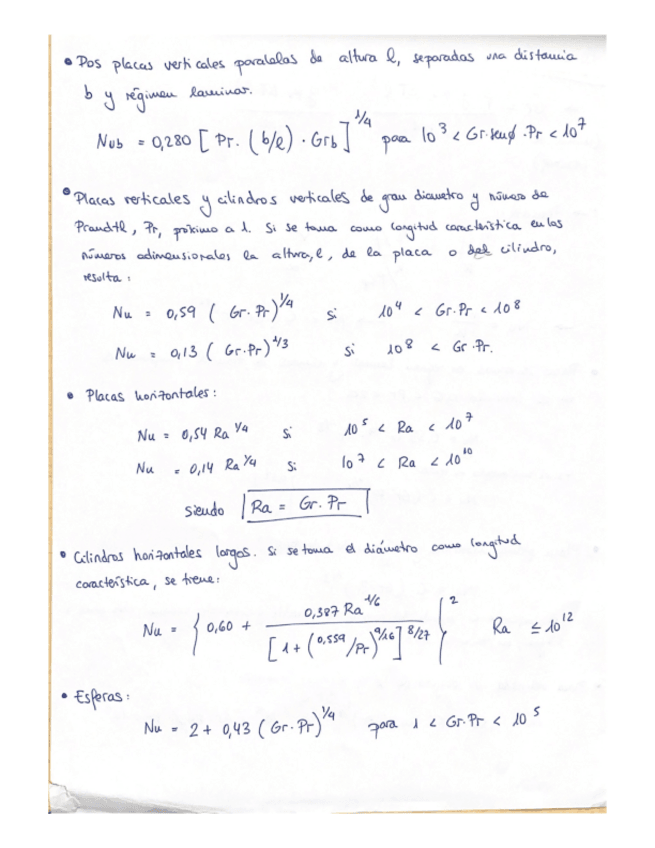 • Dos placas verticales paralelas de altura l, separadas una distancia
b y régimen laminar.
Nub = 0,280 [ Pr. (b/l) · Grb ]^1/4 para 10^3 < Gr·senφ·Pr < 10^7
• Placas verticales y cilindros verticales de gran diametro y número de
Prandtl, Pr, próximo a 1. Si se toma como longitud característica en los
números adimensionales la altura, l, de la placa o del cilindro,
resulta:
Nu = 0,59 ( Gr·Pr)^1/4 si 10^4 < Gr·Pr < 10^8
Nu = 0,13 ( Gr·Pr)^1/3 si 10^8 < Gr·Pr.
• Placas horizontales:
Nu = 0,54 Ra^1/4 si 10^5 < Ra < 10^7
Nu = 0,14 Ra^1/4 si 10^7 < Ra < 10^10
siendo Ra = Gr·Pr
• Cilindros horizontales largos. Si se toma el diámetro como longitud
característica, se tiene:
Nu = { 0,60 + 0,387 Ra^1/6 / [1 + (0,559/Pr)^9/16]^8/27 }^2 Ra ≤ 10^12
• Esferas:
Nu = 2 + 0,43 (Gr·Pr)^1/4 para 1 < Gr·Pr < 10^5